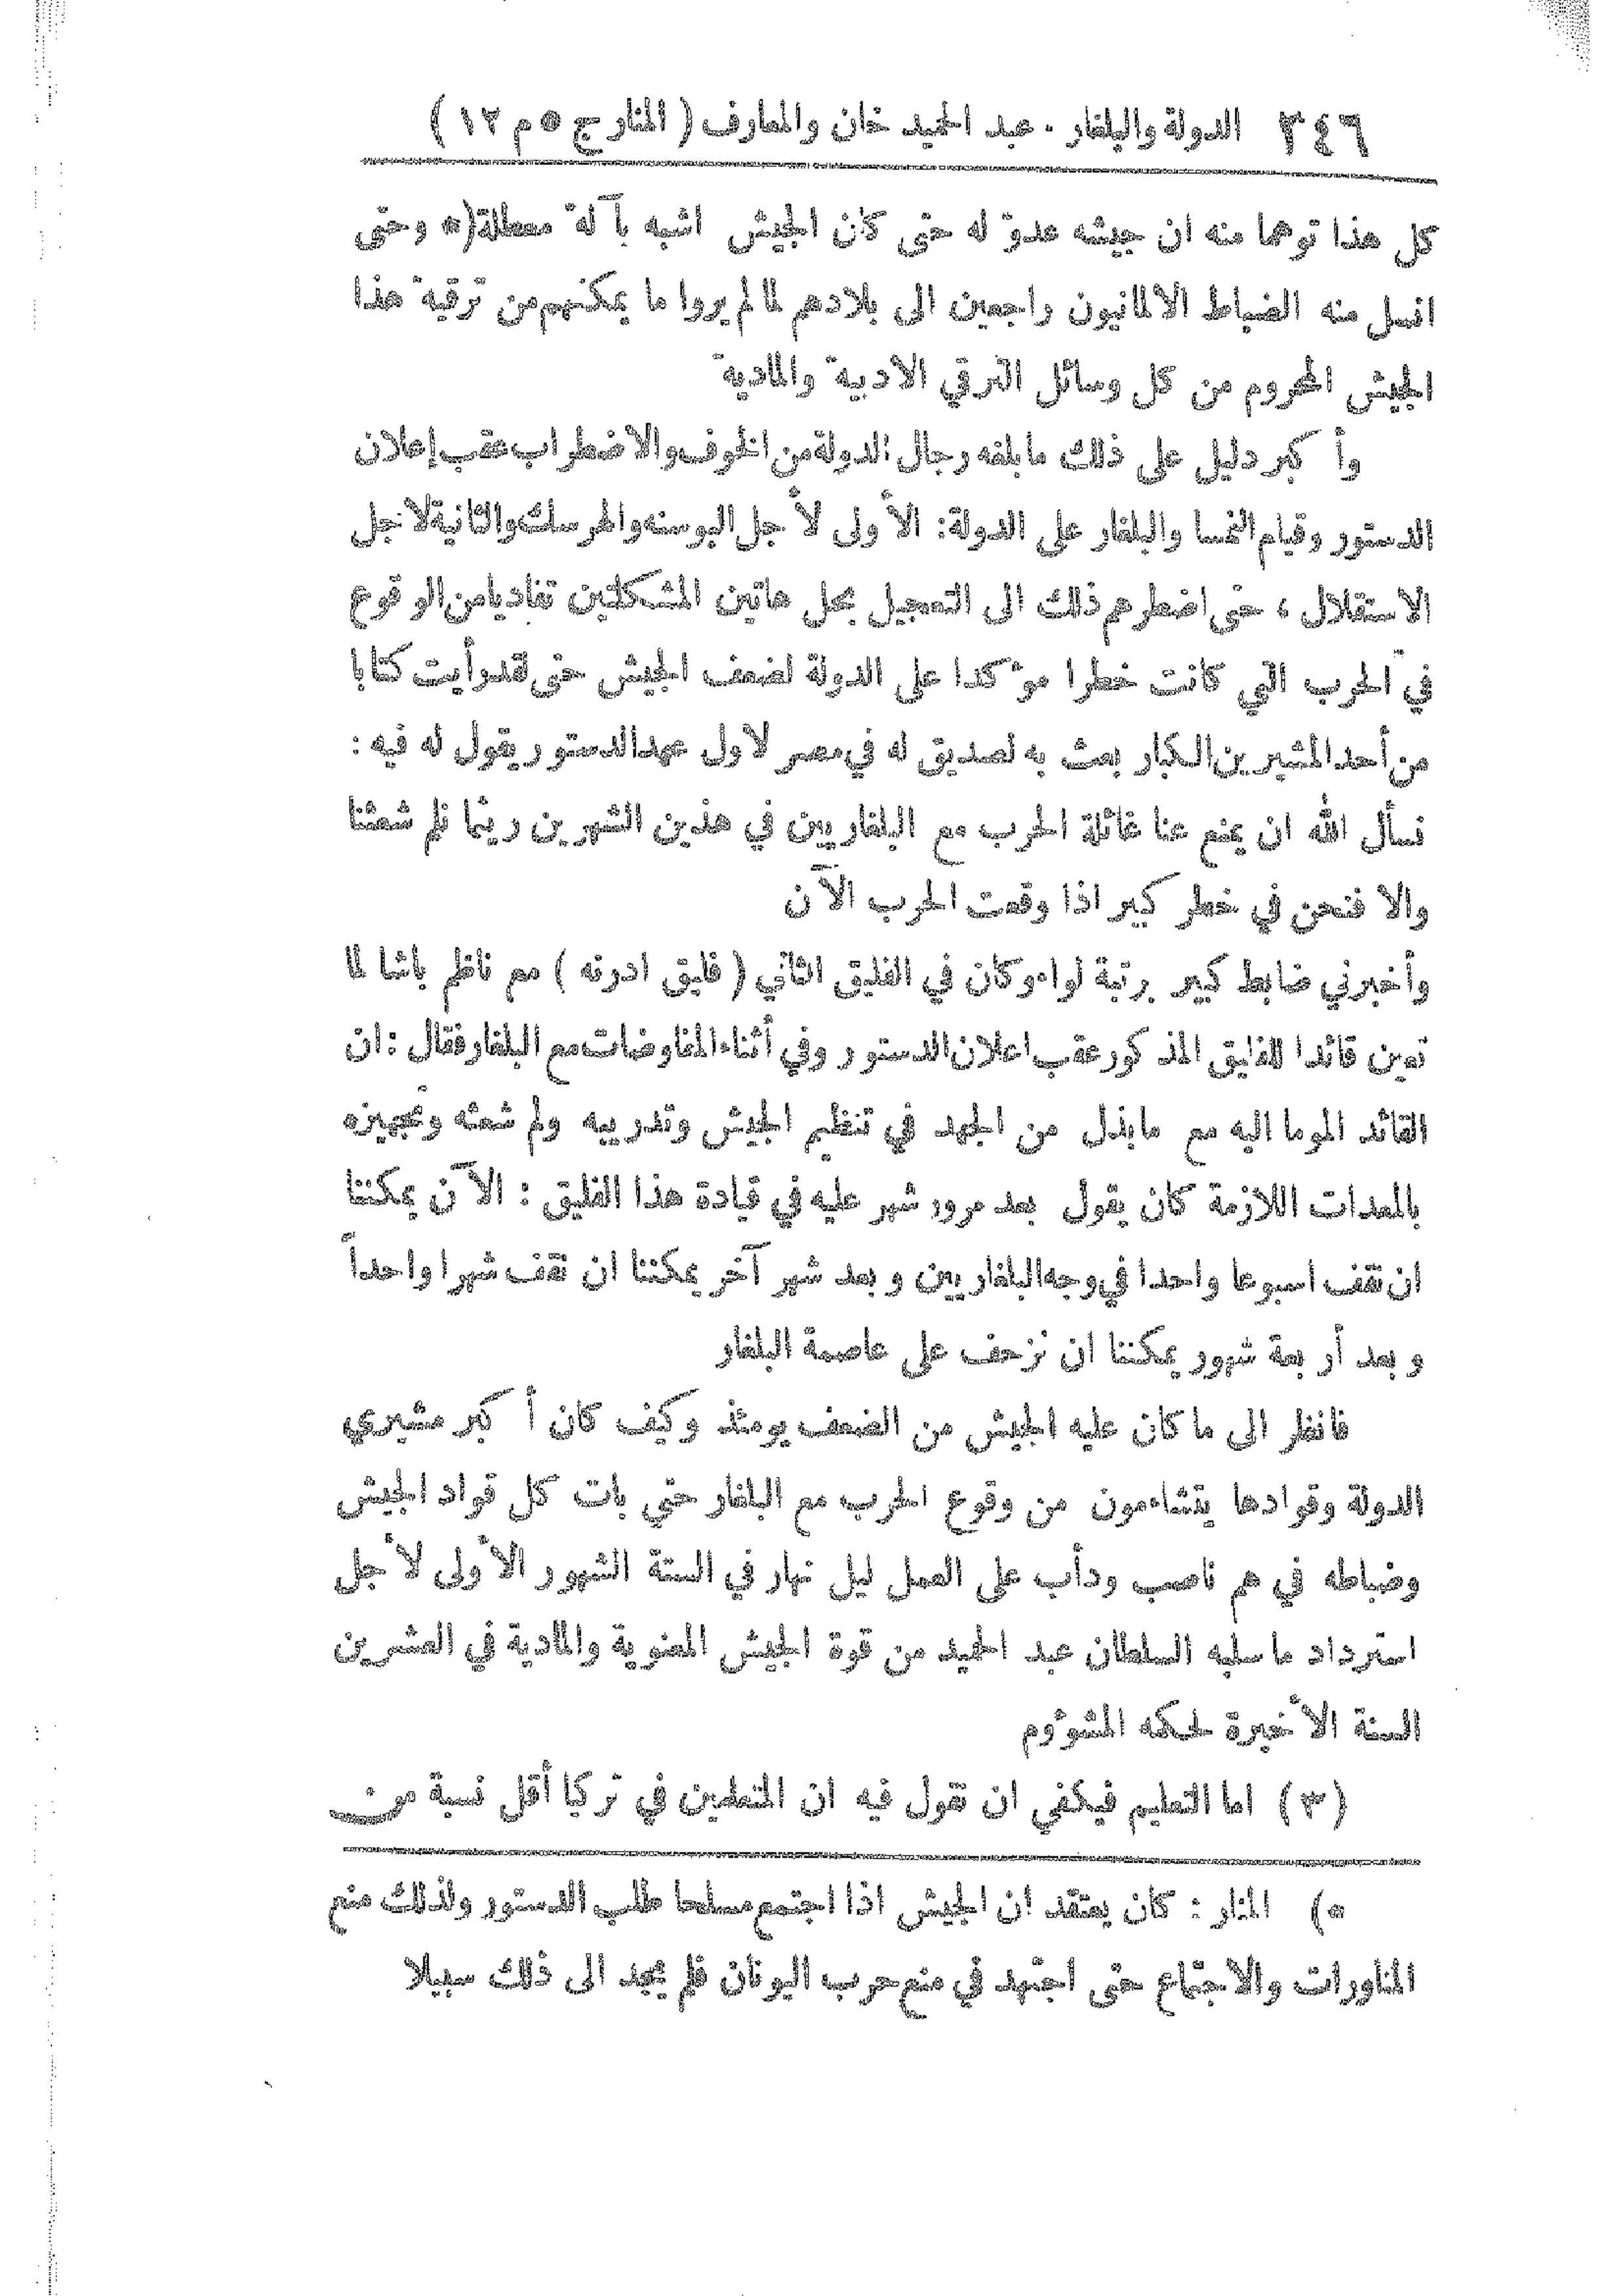 ٣٤٦ الدولة والبلغار ٠ عبد الحميد خان والمعارف ( المنار ج ٥ م ١٢ )
كل هذا توهما منه ان جيشه عدوّ له حتى كان الجيش اشبه بآلة معطلة(* وحتى
انسل منه الضباط الالمانيون راجعين الى بلادهم لما لم يروا ما يمكنهم من ترقية هذا
الجيش المحروم من كل وسائل الترقي الادبية والمادية
وأكبر دليل على ذلك ما بلغه رجال الدولة من الخوف والاضطراب عقب إعلان
الدستور وقيام النمسا والبلغار على الدولة: الأولى لأجل البوسنه والهرسك والثانية لاجل
الاستقلال ، حتى اضطرهم ذلك الى التعجيل بحل هاتين المشكلتين تفاديا من الوقوع
في الحرب التي كانت خطرا موٴكدا على الدولة لضعف الجيش حتى لقد رأيت كتابا
من أحد المشيرين الكبار بعث به لصديق له في مصر لأول عهد الدستور يقول له فيه :
نسأل الله ان يمنع عنا غائلة الحرب مع البلغاريين في هذين الشهرين ريثما نلم شعثنا
والا فنحن في خطر كبير اذا وقعت الحرب الآن
وأخبرني ضابط كبير برتبة لواء وكان في الفليق الثاني ( فليق ادرنه ) مع ناظم باشا لما
تعين قائدا للفليق المذكور عقب اعلان الدستور وفي أثناء المفاوضات مع البلغار فقال : ان
القائد الموما اليه مع ما بذل من الجهد في تنظيم الجيش وتدريبه ولم شعثه وتجهيزه
بالمعدات اللازمة كان يقول بعد مرور شهر عليه في قيادة هذا الفليق : الآن يمكننا
ان نقف اسبوعا واحدا في وجه البلغاريين وبعد شهر آخر يمكننا ان نقف شهرا واحداً
وبعد أربعة شهور يمكننا ان نزحف على عاصمة البلغار
فانظر الى ما كان عليه الجيش من الضعف يومئذ وكيف كان أكبر مشيري
الدولة وقوادها يتشاءمون من وقوع الحرب مع البلغار حتى بات كل قواد الجيش
وضباطه في هم ناصب ودأب على العمل ليل نهار في الستة الشهور الأولى لأجل
استرداد ما سلبه السلطان عبد الحميد من قوة الجيش المعنوية والمادية في العشرين
السنة الأخيرة لحكمه المشوٴوم
(٣) اما التعليم فيكفي ان نقول فيه ان المتعلمين في تركيا أقل نسبة من
*) المنار : كان يعتقد ان الجيش اذا اجتمع مسلحا طلب الدستور ولذلك منع
المناورات والاجتماع حتى اجتهد في منع حرب اليونان فلم يجد الى ذلك سبيلا